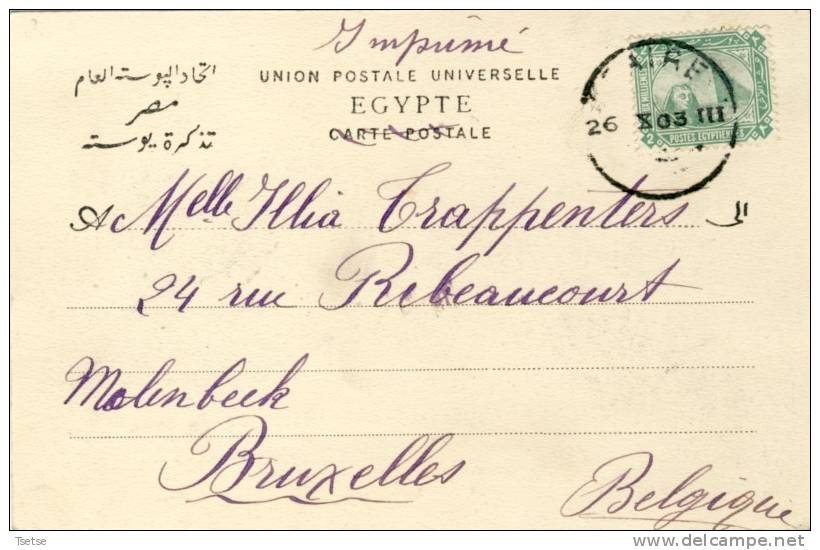 Imprimé
اتحاد البوسته العام
UNION POSTALE UNIVERSELLE
مصر
EGYPTE
تذكرة بوسته
CARTE POSTALE
26 X 03 III
POSTES EGYPTIENNES
A Melle Illia Trappenters
24 rue Ribeaucourt
Molenbeek
Bruxelles
Belgique
Tsetse
delcampe.net